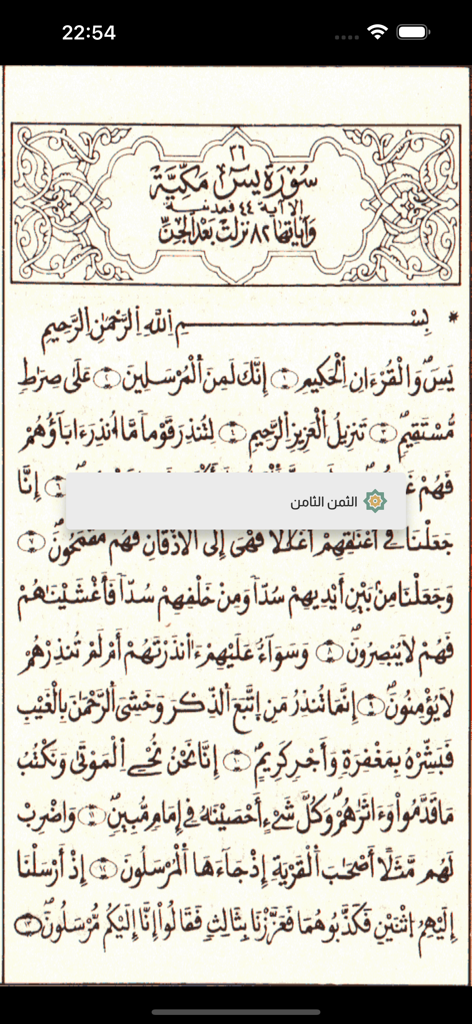 22:54
٣٦
سُورَةُ يسٓ مَكِّيَّة
إلا آية ٤٤ فمدنية
وآياتها ٨٢ نزلت بعد الجن
* بِسْمِ اِ۬للَّهِ اِ۬لرَّحْمَٰنِ اِ۬لرَّحِيمِ
يَسٓ وَالْقُرْءَانِ اِ۬لْحَكِيمِ ١ إِنَّكَ لَمِنَ اَ۬لْمُرْسَلِينَ ٢ عَلَىٰ صِرَٰطٍ
مُّسْتَقِيمٍ ٣ تَنزِيلُ اُ۬لْعَزِيزِ اِ۬لرَّحِيمِ ٤ لِتُنذِرَ قَوْماً مَّا أُنذِرَ ءَابَآؤُهُمْ
فَهُمْ إِنَّا
الثمن الثامن
جَعَلْنَا فِے أَعْنَٰقِهِمْ أَغْلَٰلًا فَهِيَ إِلَى اَ۬لْأَذْقَانِ فَهُم مُّقْمَحُونَ ٧
وَجَعَلْنَا مِنۢ بَيْنِ أَيْدِيهِمْ سُدّاً وَمِنْ خَلْفِهِمْ سُدّاً فَأَغْشَيْنَٰهُمْ
فَهُمْ لَا يُبْصِرُونَ ٨ وَسَوَآءٌ عَلَيْهِمْ ءَآنذَرْتَهُمْ أَمْ لَمْ تُنذِرْهُمْ
لَا يُؤْمِنُونَ ٩ إِنَّمَا تُنذِرُ مَنِ اِ۪تَّبَعَ اَ۬لذِّكْرَ وَخَشِيَ اَ۬لرَّحْمَٰنَ بِالْغَيْبِ
فَبَشِّرْهُ بِمَغْفِرَةٍ وَأَجْرٍ كَرِيمٍ ١٠ إِنَّا نَحْنُ نُحْيِ اِ۬لْمَوْتَىٰ وَنَكْتُبُ
مَا قَدَّمُواْ وَءَاثَٰرَهُمْ وَكُلَّ شَےْءٍ أَحْصَيْنَٰهُ فِے إِمَامٍ مُّبِينٍ ١١ وَاضْرِبْ
لَهُم مَّثَلًا أَصْحَٰبَ اَ۬لْقَرْيَةِ إِذْ جَآءَهَا اَ۬لْمُرْسَلُونَ ١٢ إِذْ أَرْسَلْنَا
إِلَيْهِمُ اُ۪ثْنَيْنِ فَكَذَّبُوهُمَا فَعَزَّزْنَا بِثَالِثٍ فَقَالُواْ إِنَّا إِلَيْكُم مُّرْسَلُونَ ١٣